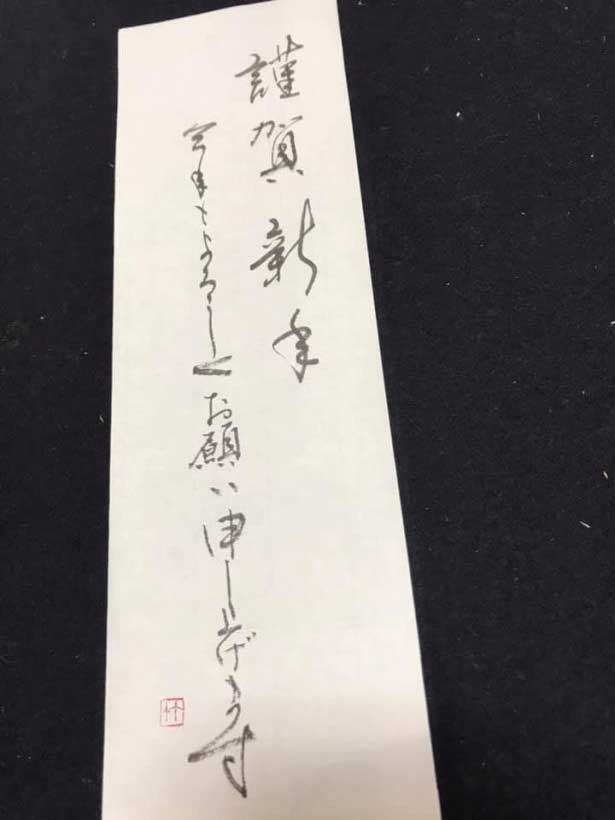 謹賀新年
今年もよろしくお願い申し上げます
竹